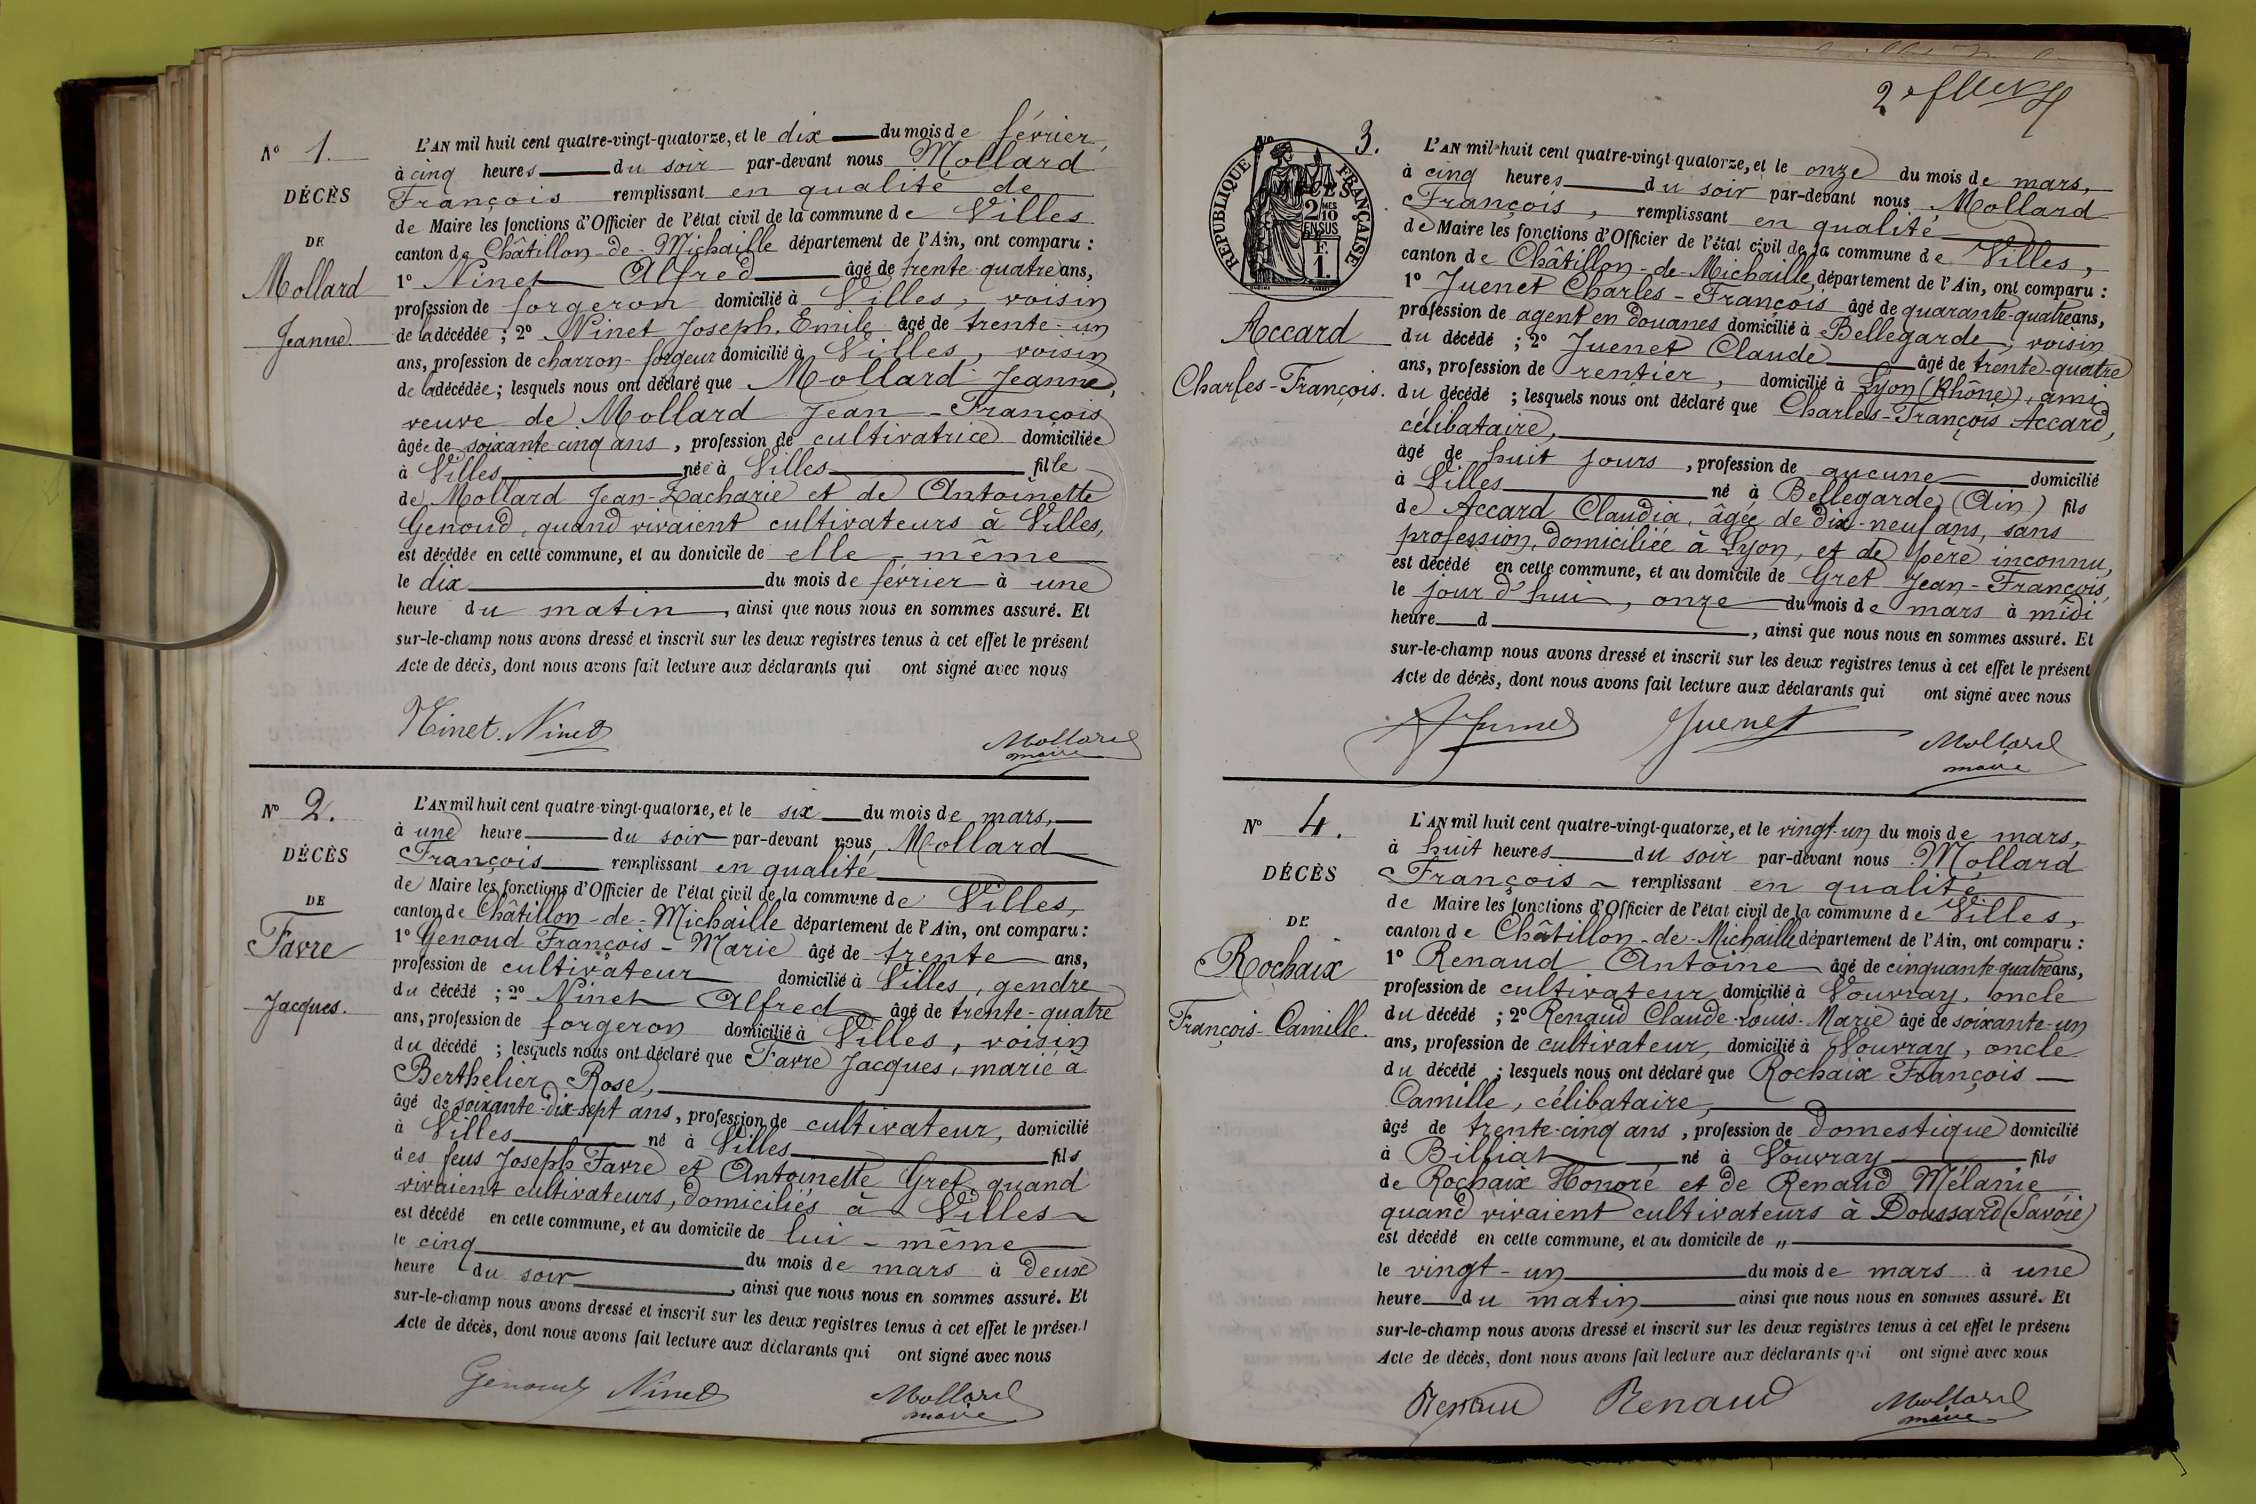 N° 1.
DÉCÈS
DE
Mollard
Jeanne
L'AN mil huit cent quatre-vingt-quatorze, et le dix du mois de février,
à cinq heures du soir par-devant nous Mollard
François remplissant en qualité de
de Maire les fonctions d'Officier de l'état civil de la commune de Villes
canton de Châtillon-de-Michaille département de l'Ain, ont comparu :
1° Ninet Alfred âgé de trente-quatre ans,
profession de forgeron domicilié à Villes, voisin
de la décédée ; 2° Ninet Joseph-Emile âgé de trente-un
ans, profession de charron-forgeur domicilié à Villes, voisin
de la décédée ; lesquels nous ont déclaré que Mollard Jeanne,
veuve de Mollard Jean-François
âgée de soixante-cinq ans, profession de cultivatrice domiciliée
à Villes née à Villes fille
de Mollard Jean-Zacharie et de Antoinette
Genoud, quand vivaient cultivateurs à Villes,
est décédée en cette commune, et au domicile de elle-même
le dix du mois de février à une
heure du matin, ainsi que nous nous en sommes assuré. Et
sur-le-champ nous avons dressé et inscrit sur les deux registres tenus à cet effet le présent
Acte de décès, dont nous avons fait lecture aux déclarants qui ont signé avec nous
Ninet. Ninet
Mollard
maire
N° 2.
DÉCÈS
DE
Favre
Jacques.
L'AN mil huit cent quatre-vingt-quatorze, et le six du mois de mars,
à une heure du soir par-devant nous, Mollard
François remplissant en qualité
de Maire les fonctions d'Officier de l'état civil de la commune de Villes,
canton de Châtillon-de-Michaille département de l'Ain, ont comparu :
1° Genoud François-Marie âgé de trente ans,
profession de cultivateur domicilié à Villes, gendre
du décédé ; 2° Ninet Alfred âgé de trente-quatre
ans, profession de forgeron domicilié à Villes, voisin
du décédé ; lesquels nous ont déclaré que Favre Jacques, marié à
Berthelier Rose,
âgé de soixante-dix-sept ans, profession de cultivateur, domicilié
à Villes né à Villes fils
des feus Joseph Favre et Antoinette Gret quand
vivaient cultivateurs, domiciliés à Villes
est décédé en cette commune, et au domicile de lui-même
le cinq du mois de mars à deux
heure du soir, ainsi que nous nous en sommes assuré. Et
sur-le-champ nous avons dressé et inscrit sur les deux registres tenus à cet effet le présent
Acte de décès, dont nous avons fait lecture aux déclarants qui ont signé avec nous
Genoud Ninet
Mollard
maire
2e
N° 3.
RÉPUBLIQUE FRANÇAISE
2 MES
10
EN SUS
F.
1.
Accard
Charles-François.
L'AN mil huit cent quatre-vingt-quatorze, et le onze du mois de mars,
à cinq heures du soir par-devant nous Mollard
François, remplissant en qualité
de Maire les fonctions d'Officier de l'état civil de la commune de Villes,
canton de Châtillon-de-Michaille, département de l'Ain, ont comparu :
1° Juenet Charles-François âgé de quarante-quatre ans,
profession de agent en douanes domicilié à Bellegarde, voisin
du décédé ; 2° Juenet Claude âgé de trente-quatre
ans, profession de rentier, domicilié à Lyon (Rhône), ami
du décédé ; lesquels nous ont déclaré que Charles-François Accard,
célibataire,
âgé de huit jours, profession de aucune domicilié
à Villes né à Bellegarde (Ain) fils
de Accard Claudia, âgée de dix-neuf ans, sans
profession, domiciliée à Lyon, et de père inconnu,
est décédé en cette commune, et au domicile de Gret Jean-François,
le jour d'hui, onze du mois de mars à midi
heure d, ainsi que nous nous en sommes assuré. Et
sur-le-champ nous avons dressé et inscrit sur les deux registres tenus à cet effet le présent
Acte de décès, dont nous avons fait lecture aux déclarants qui ont signé avec nous
Juenet
Mollard
maire
N° 4.
DÉCÈS
DE
Rochaix
François-Camille.
L'AN mil huit cent quatre-vingt-quatorze, et le vingt-un du mois de mars,
à huit heures du soir par-devant nous Mollard
François remplissant en qualité
de Maire les fonctions d'Officier de l'état civil de la commune de Villes,
canton de Châtillon-de-Michaille département de l'Ain, ont comparu :
1° Renaud Antoine âgé de cinquante-quatre ans,
profession de cultivateur domicilié à Vouvray, oncle
du décédé ; 2° Renaud Claude-Louis-Marie âgé de soixante-un
ans, profession de cultivateur, domicilié à Vouvray, oncle
du décédé ; lesquels nous ont déclaré que Rochaix François
Camille, célibataire,
âgé de trente-cinq ans, profession de domestique domicilié
à Billiat né à Vouvray fils
de Rochaix Honoré et de Renaud Mélanie
quand vivaient cultivateurs à Doussard (Savoie)
est décédé en cette commune, et au domicile de „
le vingt-un du mois de mars à une
heure du matin ainsi que nous nous en sommes assuré. Et
sur-le-champ nous avons dressé et inscrit sur les deux registres tenus à cet effet le présent
Acte de décès, dont nous avons fait lecture aux déclarants qui ont signé avec nous
Renaud Renaud
Mollard
maire